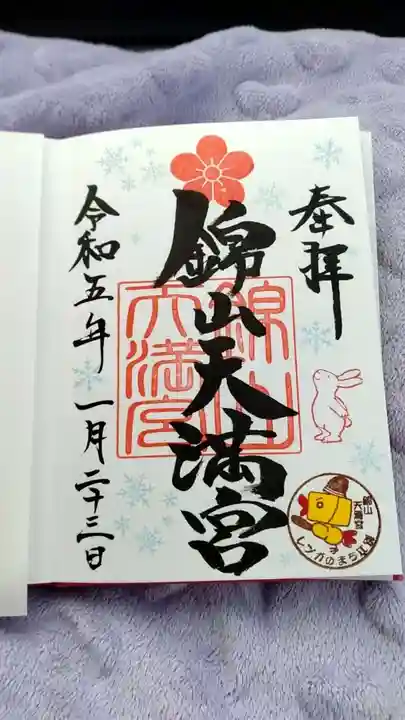 奉拝
錦山天満宮
錦山
天満宮
令和五年 一月二十三日
錦山
天満宮
レンガのまち江別